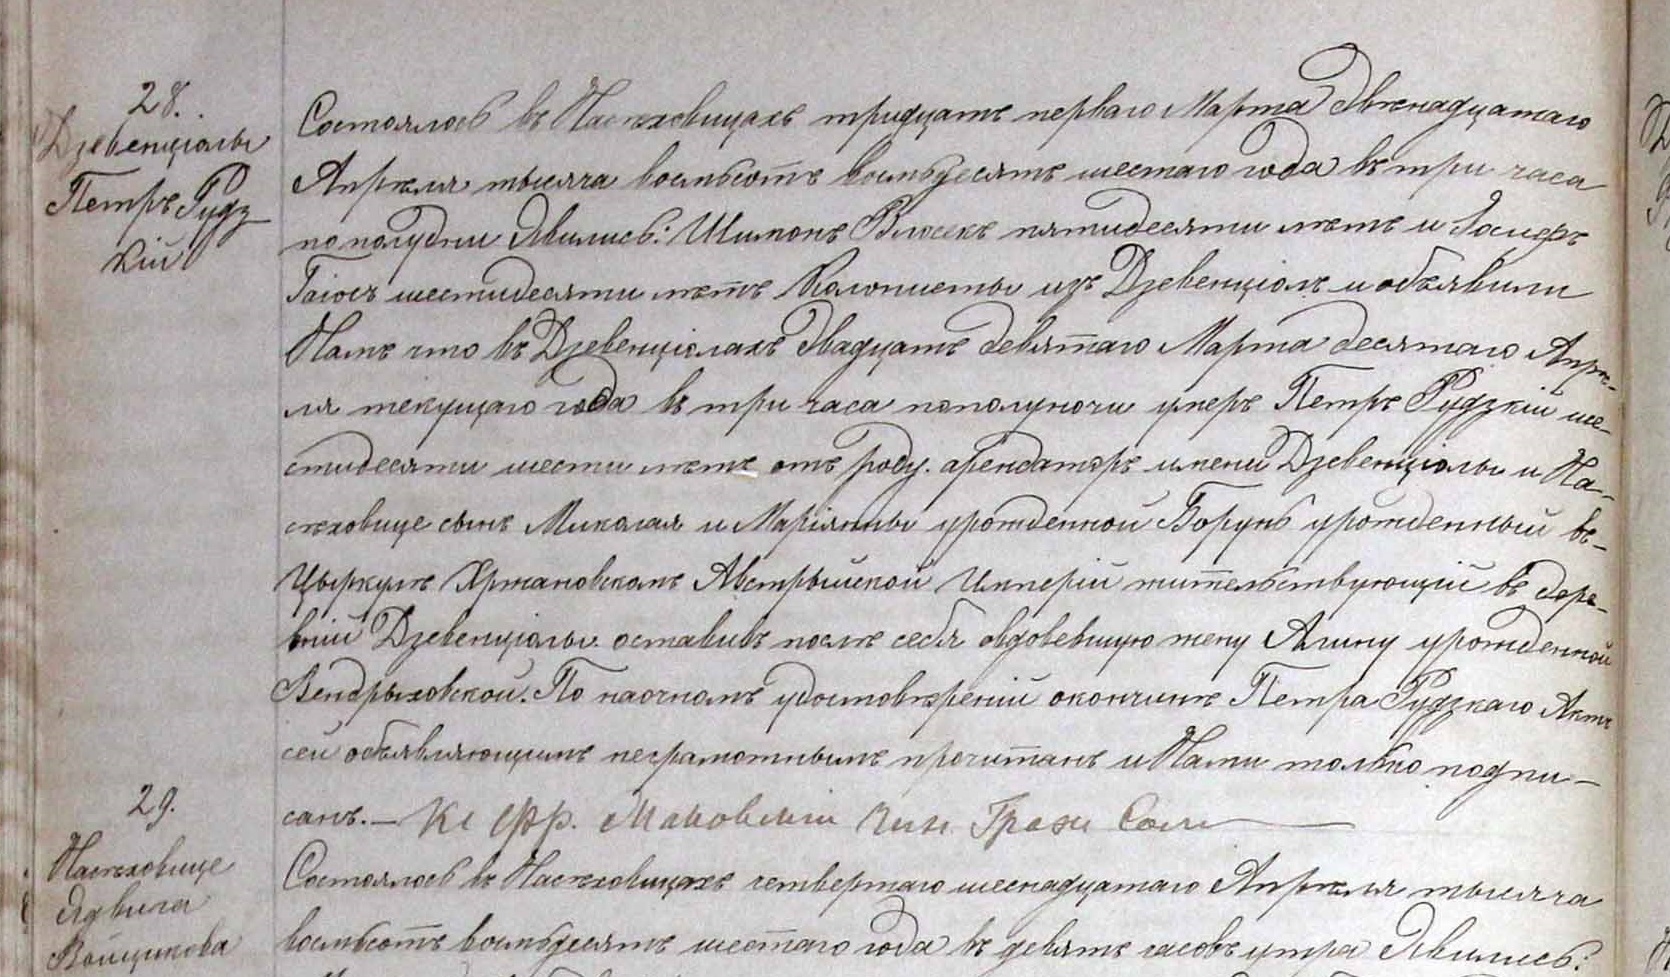 28.
Дзевенціолы
Петръ Рудз
кій
Состоялось въ Насѣховицахъ тридцать перваго Марта Двѣнадцатаго
Апрѣля тысяча восмьсотъ восмьдесятъ шестаго года въ три часа
пополудни Явились: Шимонъ Влосекъ пятидесяти лѣтъ и
шестидесяти лѣтъ Колонисты изъ Дзевенціолъ и объявили
Намъ что въ Дзевенціолахъ Двадцать девятаго Марта десятаго Апрѣ-
ля текущаго года въ три часа пополуночи умеръ Петръ Рудзкій ше-
стидесяти шести лѣтъ отъ роду. арендаторъ имени Дзевенціолы и На-
сѣховице сынъ Миколая и Маріянны урожденной Борунь урожденный въ-
Цыркулѣ Хржановскомъ Австрыйской Имперій жительствующій въ дере-
вній Дзевенціолы оставивъ послѣ себя овдовевшую жену Алину урожденной
Вендрыховской. По наочномъ удостовѣреній окончинѣ Петра Рудзкаго Актъ
сей объявляющимъ неграмотнымъ прочитанъ и Нами только подпи-
санъ.— Кс Фр. Маковскій Чин. Граж Сост
29.
Насѣховице
Ядвига
Войцикова
Состоялось въ Насѣховицахъ четвертаго шеснадцатаго Апрѣля тысяча
восмьсотъ восмьдесятъ шестаго года въ девять часовъ утра Явились: